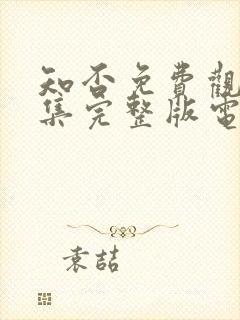 知否免費觀
集完整版電
袁喆